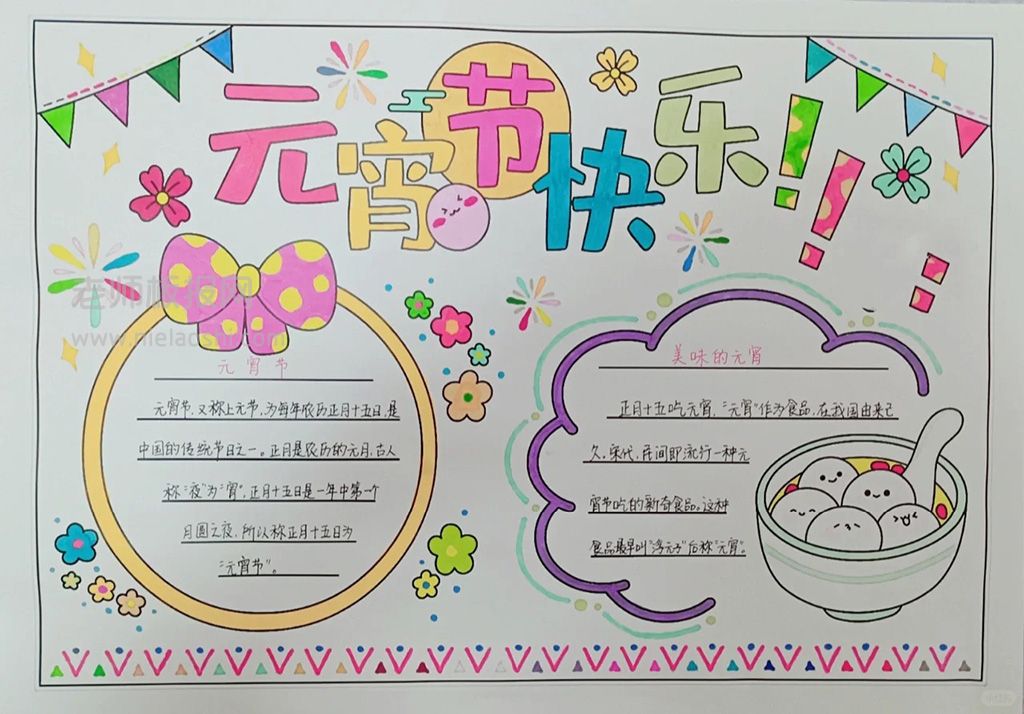 元宵节快乐!!!
老师板报网
www.meladsw.com
元宵节
元宵节,又称上元节,为每年农历正月十五日,是
中国的传统节日之一。正月是农历的元月,古人
称“夜”为“宵”,正月十五日是一年中第一个
月圆之夜,所以称正月十五日为
“元宵节”。
美味的元宵
正月十五吃元宵,“元宵”作为食品,在我国由来已
久。宋代,民间即流行一种元
宵节吃的新奇食品。这种
食品最早叫“浮元子”后称“元宵”。
小红书